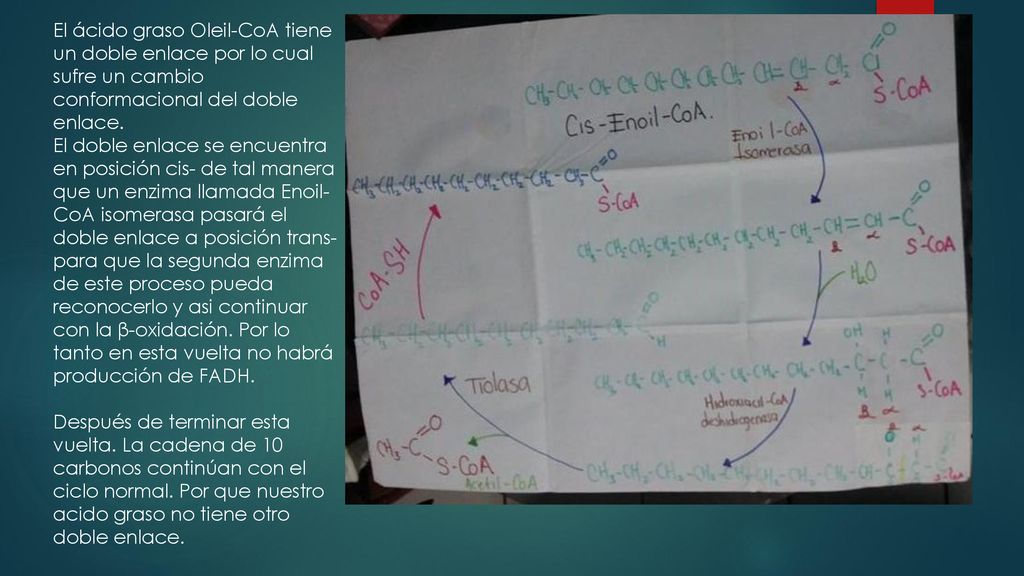 El ácido graso Oleil-CoA tiene
un doble enlace por lo cual
sufre un cambio
conformacional del doble
enlace.
El doble enlace se encuentra
en posición cis- de tal manera
que un enzima llamada Enoil-
CoA isomerasa pasará el
doble enlace a posición trans-
para que la segunda enzima
de este proceso pueda
reconocerlo y asi continuar
con la β-oxidación. Por lo
tanto en esta vuelta no habrá
producción de FADH.
Después de terminar esta
vuelta. La cadena de 10
carbonos continúan con el
ciclo normal. Por que nuestro
acido graso no tiene otro
doble enlace.
O
S-CoA
Cis-Enoil-CoA.
Enoil-CoA
Isomerasa
CH₃-CH₂-CH₂-CH₂-CH₂-CH₂-CH₂-CH₂-CH₂-C
O
S-CoA
O
CH=CH-C
S-CoA
CoA-SH
H₂O
O
H
OH H
O
C-C-C
S-CoA
H H
β α
Tiolasa
Hidroxiacil-CoA
deshidrogenasa
CH₃-C
O
S-CoA
Acetil-CoA